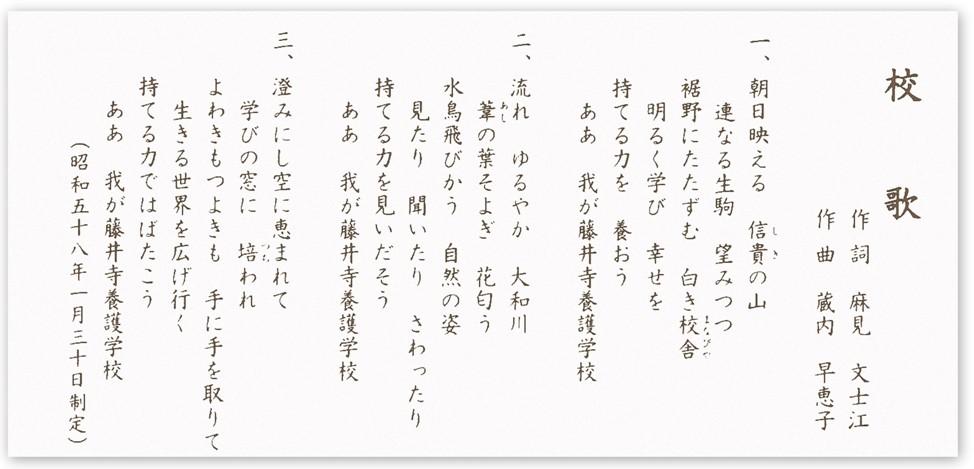 校歌
作詞　麻見　文士江
作曲　蔵内　早恵子
一、朝日映える　信貴の山
連なる生駒　望みつつ
裾野にたたずむ　白き校舎
明るく学び　幸せを
持てる力を　養おう
ああ　我が藤井寺養護学校
二、流れ　ゆるやか　大和川
葦の葉そよぎ　花匂う
水鳥飛びかう　自然の姿
見たり　聞いたり　さわったり
持てる力を見いだそう
ああ　我が藤井寺養護学校
三、澄みにし空に恵まれて
学びの窓に　培われ
よわきもつよきも　手に手を取りて
生きる世界を広げ行く
持てる力ではばたこう
ああ　我が藤井寺養護学校
（昭和五十八年一月三十日制定）